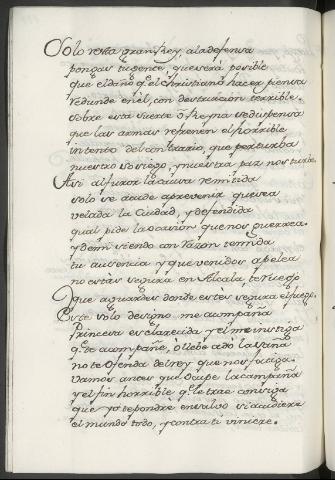 Solo resta gran Rey, a la defensa
pongas tu gente, que será posible
que el daño q.e el christiano hacer piensa
redunde en él, con destruicion terrible.
sobre esta suerte
que las armas refrenen el horrible
intento del contrario, que perturba
nuestro sosiego, y nuestra paz nos turba.
Asi al furor la causa remitida
solo se atiende a prevenir que sea
velada la Ciudad, y defendida
qual pide la ocasion que nos guerrea.
y Demi siendo con razon temida
tu ausencia y que venidos a pelea
no estás segura en Alcala, te ruego
que aguardes donde estes segura el fuego.
Este solo designo me acompaña
Princesa esclarecida y el me instiga
q.e te acompañe, ò llebe adò la saña
no te ofenda del rey que nos fatiga.
vamos antes que Ocupe la campaña
y el fin horrible q.e trae consiga
que yo te pondre en salvo si acudiere
el mundo todo, y contra ti viniere.